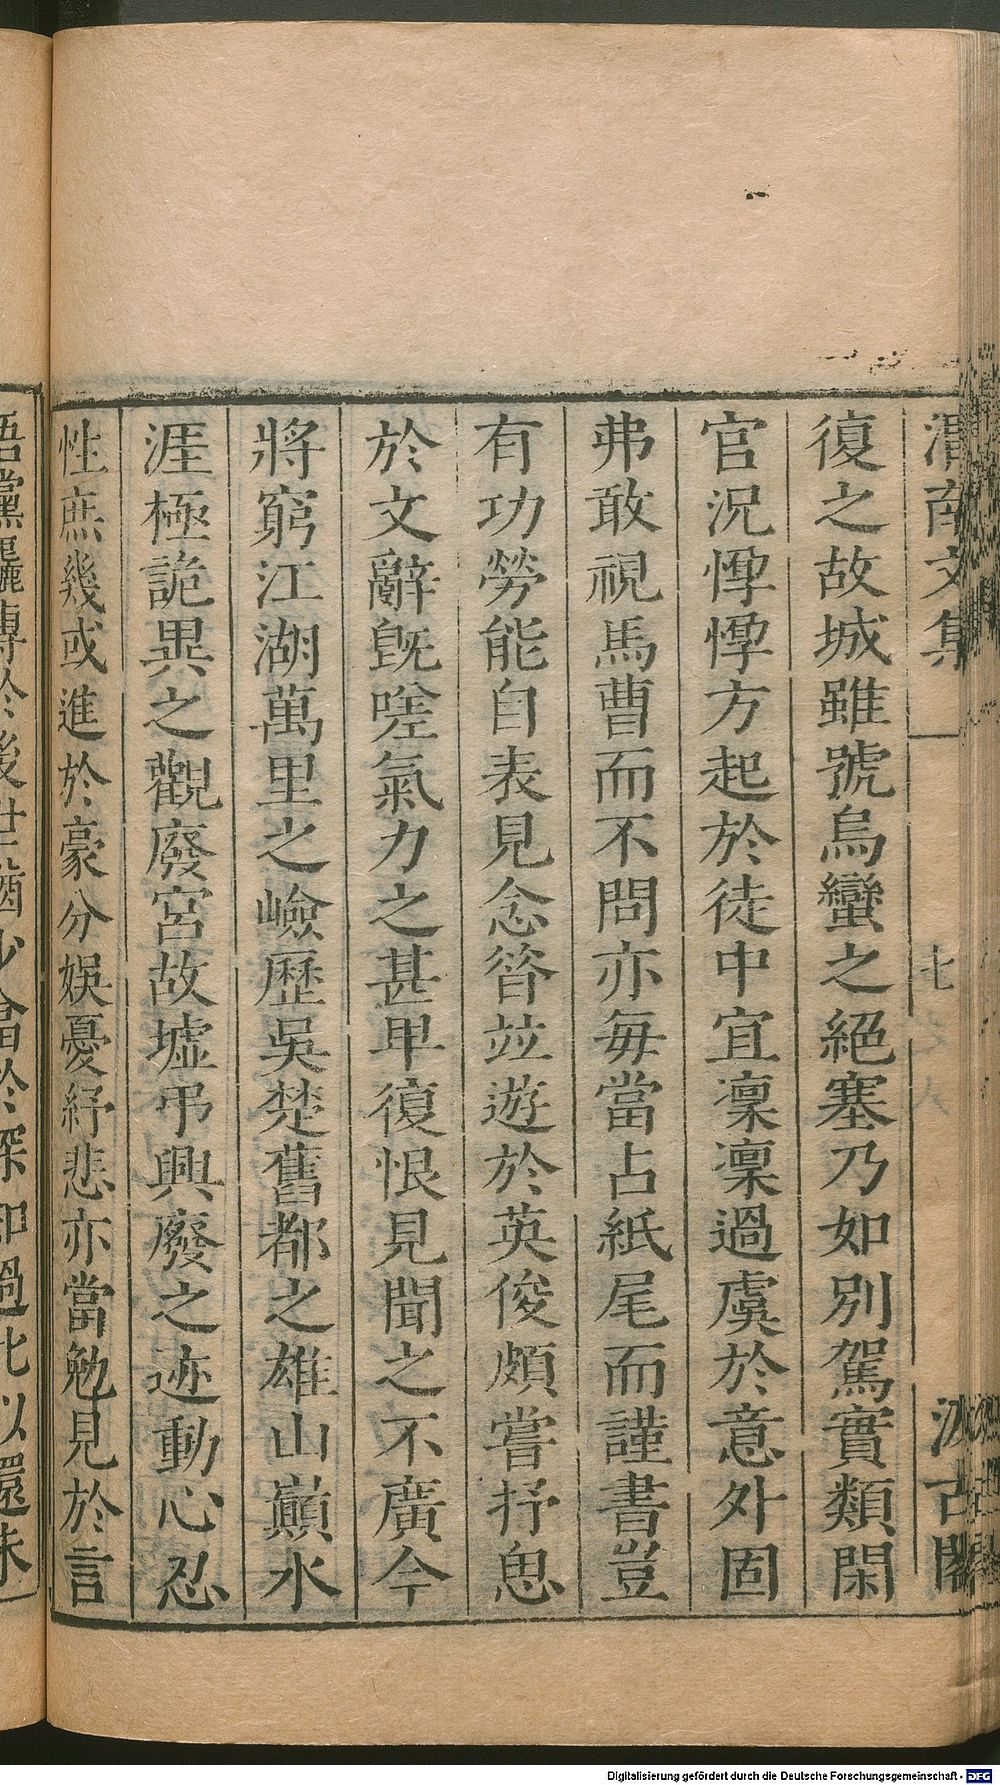 渭南文集
七
汲古閣
復之故城雖號烏蠻之絕塞乃如別駕實類閑
官況惸惸方起於徒中宜凜凜過虞於意外固
弗敢視馬曹而不問亦每當占紙尾而謹書豈
有功勞能自表見念昝竝遊於英俊頗嘗抒思
於文辭旣嗟氣力之甚卑復恨見聞之不廣今
將窮江湖萬里之嶮歷吳楚舊都之雄山巓水
涯極詭異之觀廢宮故墟弔興廢之迹動心忍
性庶幾或進於豪分娛憂紓悲亦當勉見於言
Digitalisierung gefördert durch die Deutsche Forschungsgemeinschaft - DFG